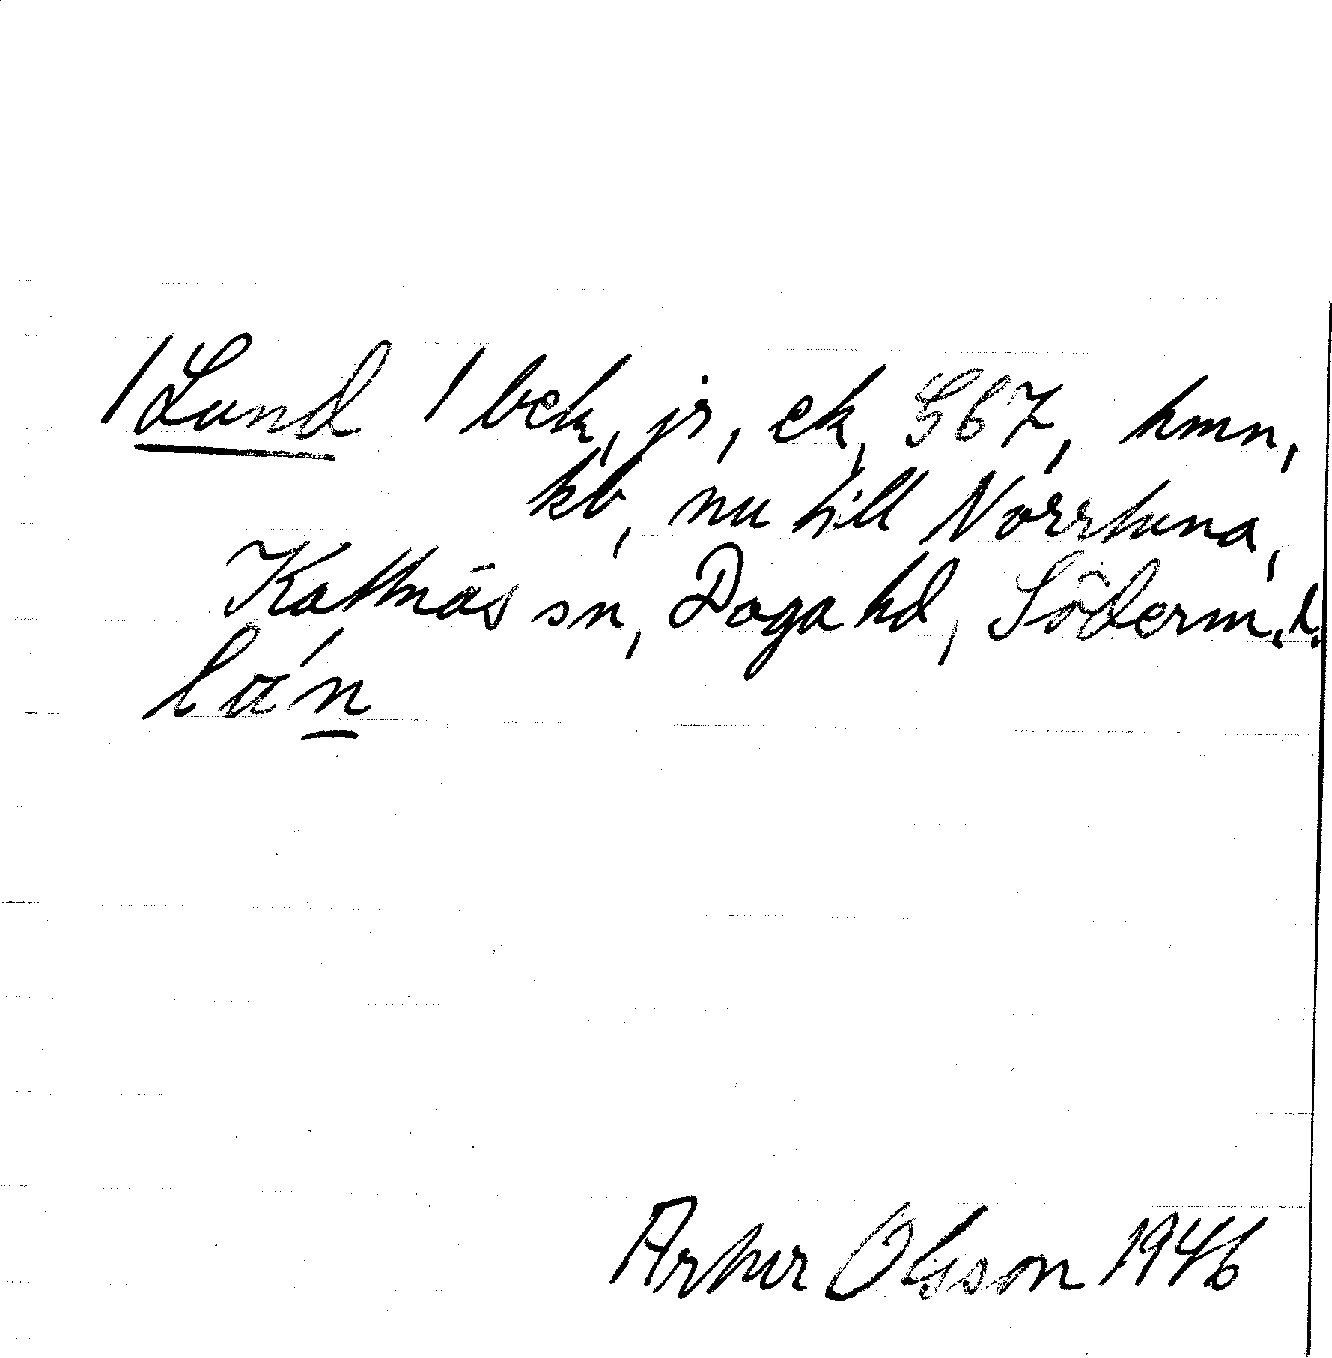 /Lund / bek, jr, ek, G67, hmn,
kb, nu till Norrtuna,
Kattnäs sn, Daga hd, Söderm.l.
län
Artur Olsson 1946